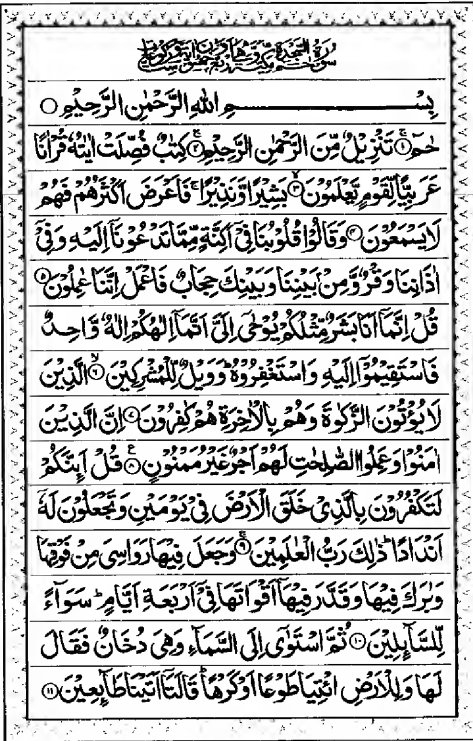 بِسْمِ اللهِ الرَّحْمٰنِ الرَّحِيْمِ ○
حٰمٓ ۚ﴿۱﴾ تَنْزِيْلٌ مِّنَ الرَّحْمٰنِ الرَّحِيْمِ ۚ﴿۲﴾ كِتٰبٌ فُصِّلَتْ اٰيٰتُهٗ قُرْاٰنًا
عَرَبِيًّا لِّقَوْمٍ يَّعْلَمُوْنَ ۙ﴿۳﴾ بَشِيْرًا وَّنَذِيْرًا ۚ فَاَعْرَضَ اَكْثَرُهُمْ فَهُمْ
لَا يَسْمَعُوْنَ ﴿۴﴾ وَقَالُوْا قُلُوْبُنَا فِيْٓ اَكِنَّةٍ مِّمَّا تَدْعُوْنَآ اِلَيْهِ وَفِيْٓ
اٰذَانِنَا وَقْرٌ وَّمِنْۢ بَيْنِنَا وَبَيْنِكَ حِجَابٌ فَاعْمَلْ اِنَّنَا عٰمِلُوْنَ ﴿۵﴾
قُلْ اِنَّمَآ اَنَا بَشَرٌ مِّثْلُكُمْ يُوْحٰٓى اِلَيَّ اَنَّمَآ اِلٰهُكُمْ اِلٰهٌ وَّاحِدٌ
فَاسْتَقِيْمُوْٓا اِلَيْهِ وَاسْتَغْفِرُوْهُ ؕ وَوَيْلٌ لِّلْمُشْرِكِيْنَ ۙ﴿۶﴾ الَّذِيْنَ
لَا يُؤْتُوْنَ الزَّكٰوةَ وَهُمْ بِالْاٰخِرَةِ هُمْ كٰفِرُوْنَ ﴿۷﴾ اِنَّ الَّذِيْنَ
اٰمَنُوْا وَعَمِلُوا الصّٰلِحٰتِ لَهُمْ اَجْرٌ غَيْرُ مَمْنُوْنٍ ۚ﴿۸﴾ قُلْ اَئِنَّكُمْ
لَتَكْفُرُوْنَ بِالَّذِيْ خَلَقَ الْاَرْضَ فِيْ يَوْمَيْنِ وَتَجْعَلُوْنَ لَهٗٓ
اَنْدَادًا ؕ ذٰلِكَ رَبُّ الْعٰلَمِيْنَ ۚ﴿۹﴾ وَجَعَلَ فِيْهَا رَوَاسِيَ مِنْ فَوْقِهَا
وَبٰرَكَ فِيْهَا وَقَدَّرَ فِيْهَآ اَقْوَاتَهَا فِيْٓ اَرْبَعَةِ اَيَّامٍ ؕ سَوَآءً
لِّلسَّآئِلِيْنَ ﴿۱۰﴾ ثُمَّ اسْتَوٰٓى اِلَى السَّمَآءِ وَهِيَ دُخَانٌ فَقَالَ
لَهَا وَلِلْاَرْضِ ائْتِيَا طَوْعًا اَوْ كَرْهًا ؕ قَالَتَآ اَتَيْنَا طَآئِعِيْنَ ﴿۱۱﴾